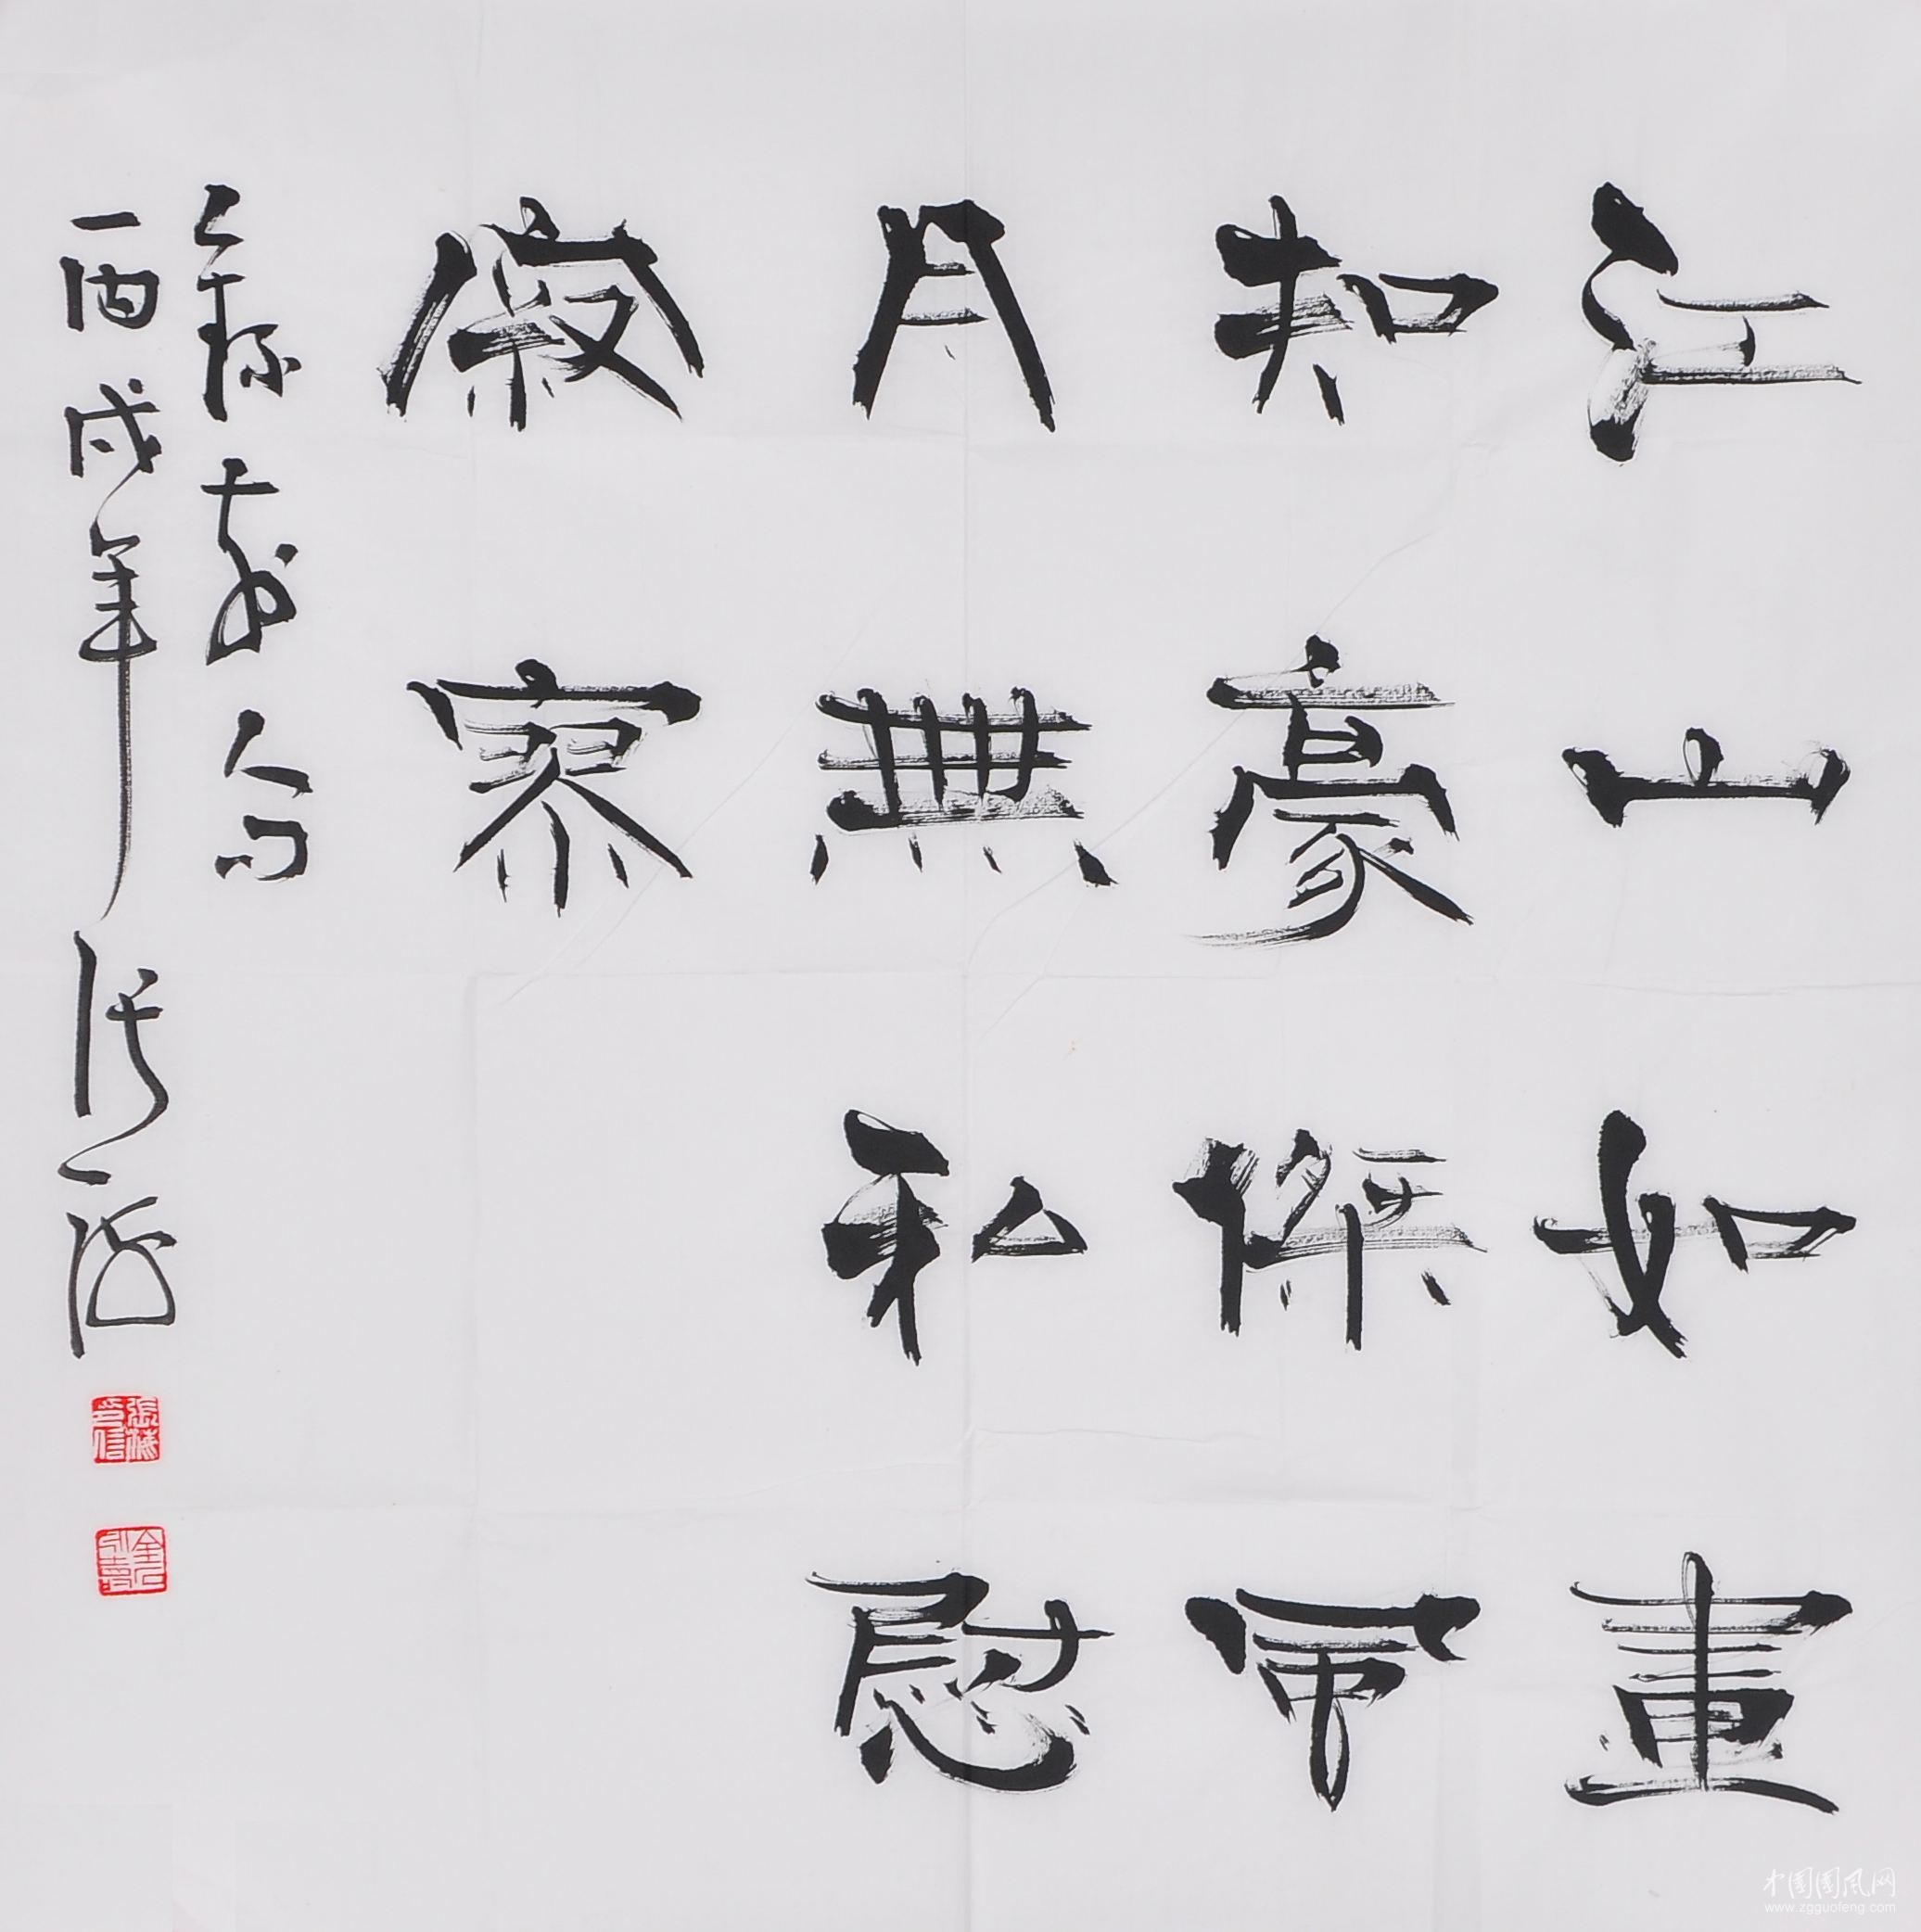 江山如畫
知豪傑風
月無私慰
寂寥
錄前人句
丙戌年張
中国国风网
www.zgguofeng.com